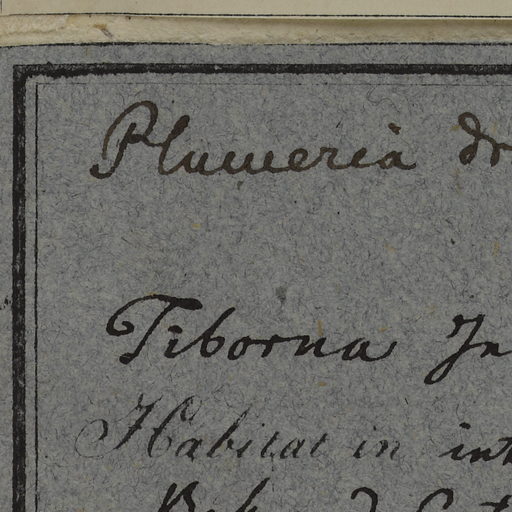 Plumeria dr
Tiborna In
Habitat in int